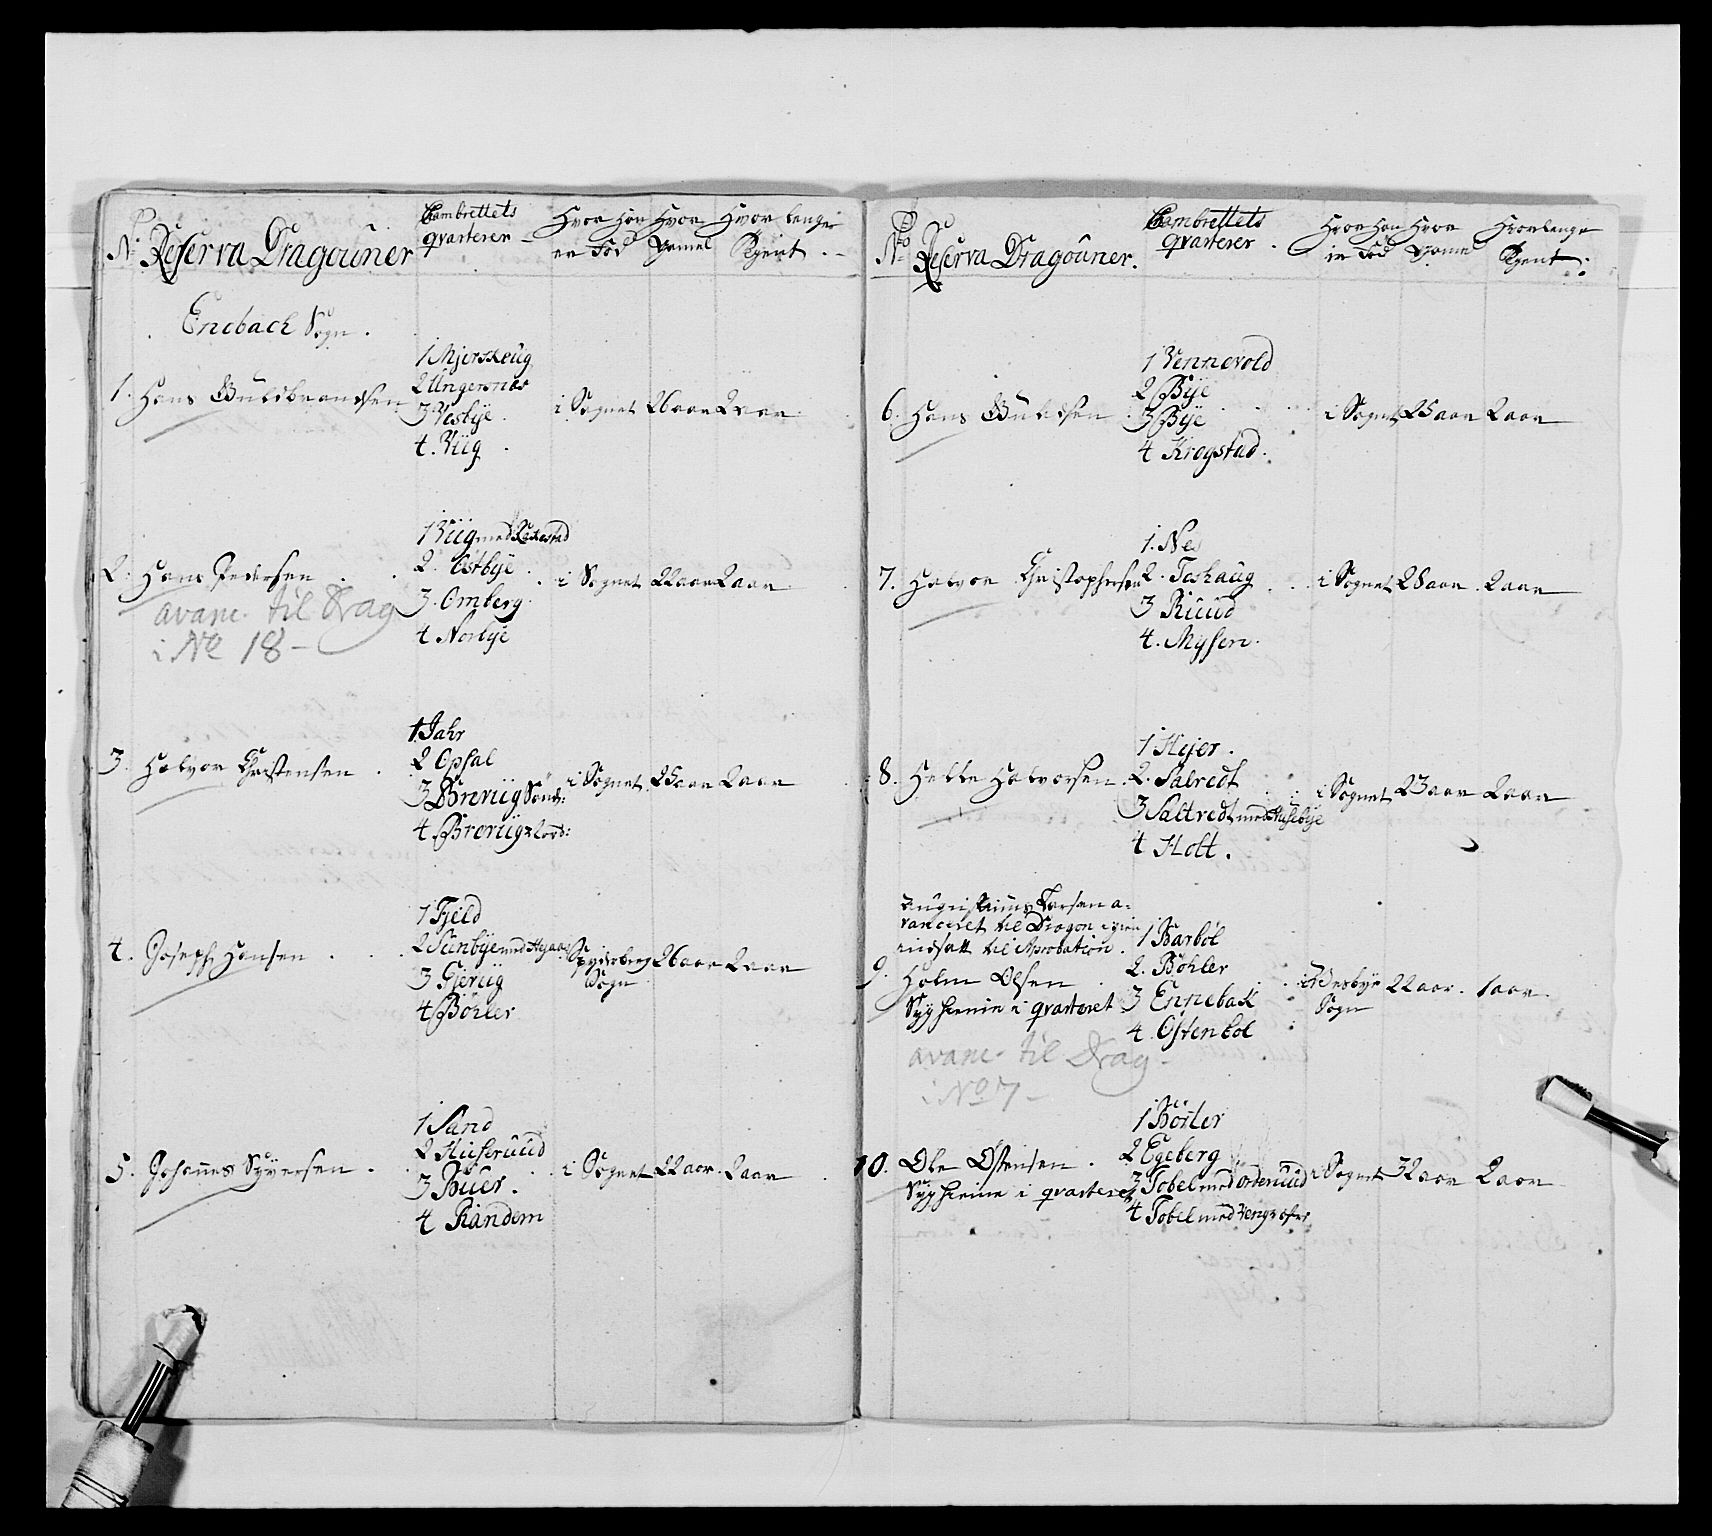 No Reserva Dragouner
Cambrettets qvarterer
Hvor han er Fød
Hvor Gamel
Hvor lenge Tjent
Enebach Sogn.
1. Hans Guldbrandsen
1 Mjerskoug
2 Ungersnes
3 Vesbye
4. Viig
i Sognet 26 aar 2 aar
2. Hans Pedersen
avanc. til Drag
i No 18
1 Viig med
2. Østbye
3. Omberg
4 Norbye
i Sognet 22 aar 2 aar
3. Halvor Christensen
1 Jahr
2 Opsal
3 Brevig Sønd:
4 Breviig Nord:
i Sognet 25 aar 2 aar
4. Joseph Hansen
1 Fjeld
2 Sunbye med
3 Gjeriig
4 Bøhler
Spydeberg Sogn
26 aar 2 aar
5. Johannes Syversen
1 Sand
2 Huseruud
3 Buer.
4 Randem
i Sognet 22 aar. 2 aar
No Reserva Dragouner.
Cambrettets qvarterer.
Hvor han er Fød
Hvor Gamel
Hvor lenge Tjent
6. Hans Gulidsen
1 Vennevold
2 Bye
3 Bye
4 Krogstad.
i Sognet 25 aar 2 aar
7. Halvor Christophersen
1. Nes
2. Toshaug
3 Ruud
4. Mysen.
i Sognet 28 aar. 2 aar
8. Helle Halvorsen
1 Højer.
2. Salredt
3 Saltredt med Husebye
4 Holt.
i Sognet 23 aar 2 aar
Larsen a-
vanceret til Dragon igien
indsatt til Aprobation.
9. Holm Olsen
Syg hiemme i qvarteret
avanc. til Drag
i No 7
1 Barbøl
2. Bøhler
3 Ennebak
4. Østenbøl
i Wesbye Sogn
22 aar. 1 aar.
10. Ole Østensen.
Syg hiemme i qvarteret
1 Børter
2 Egeberg
3 Tobel med
4 Tobel med
i Sognet 32 aar 2 aar